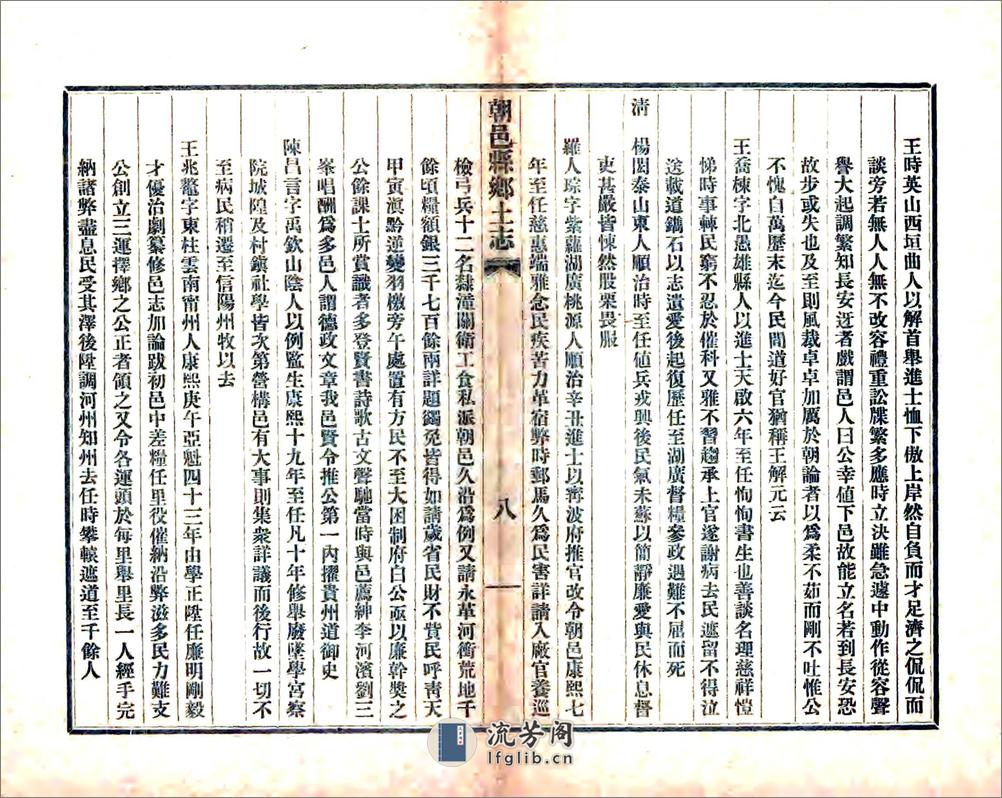 王時英山西垣曲人以解首舉進士恤下傲上岸然自負而才足濟之侃侃而
談旁若無人人無不改容禮重訟牒繁多應時立決雖急遽中動作從容聲
譽大起調繁知長安迓者戲謂邑人曰公幸値下邑故能立名若到長安恐
故步或失也及至則風裁卓卓加厲於朝論者以爲柔不茹而剛不吐惟公
不愧自萬歷末迄今民間道好官猶稱王解元云
王喬棟字北愚雄縣人以進士天啟六年至任恂恂書生也善談名理慈祥愷
悌時事棘民窮不忍於催科又雅不習趨承上官遂謝病去民遮留不得泣
送載道鐫石以志遺愛後起復歷任至湖廣督糧參政遇難不屈而死
清 楊閎泰山東人順治時至任値兵戎興後民氣未蘇以簡靜廉愛與民休息督
吏甚嚴皆悚然股栗畏服
羅人琮字紫蘿湖廣桃源人順治辛丑進士以甯波府推官改令朝邑康熙七
年至任慈惠端雅念民疾苦力革宿弊時郵馬久爲民害詳請入廠官養巡
朝邑縣鄉土志
八
檢弓兵十二名隸潼關衛工食私派朝邑久沿爲例又請永革河衝荒地千
餘頃糧額銀三千七百餘兩詳題蠲免皆得如請歲省民財不貲民呼靑天
甲寅滇黔逆變羽檄旁午處置有方民不至大困制府白公亟以廉幹獎之
公餘課士所賞識者多登賢書詩歌古文聲馳當時與邑薦紳李河濱劉三
峯唱酬爲多邑人謂德政文章我邑賢令推公第一內擢貴州道御史
陳昌言字禹欽山陰人以例監生康熙十九年至任凡十年修舉廢墜學宮察
院城隍及村鎭社學皆次第營構邑有大事則集衆詳議而後行故一切不
至病民稍遷至信陽州牧以去
王兆鼇字東柱雲南甯州人康熙庚午亞魁四十三年由學正陞任廉明剛毅
才優治劇纂修邑志加論跋初邑中差糧任里役催納沿弊滋多民力難支
公創立三運擇鄉之公正者領之又令各運頭於每里舉里長一人經手完
納諸弊盡息民受其澤後陞調河州知州去任時攀轅遮道至千餘人
流芳阁
lfglib.cn